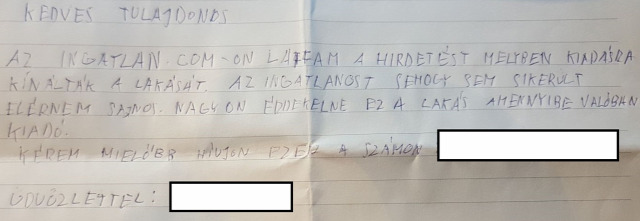 KEDVES TULAJDONOS
AZ INGATLAN.COM-ON LÁTTAM A HIRDETÉST MELYBEN KIADÁSRA
KÍNÁLTÁK A LAKÁSÁT. AZ INGATLANOST SEHOGY SEM SIKERÜLT
ELÉRNEM SAJNOS. NAGYON ÉDDEKELNE EZ A LAKÁS AMENNYIBE VALÓBAN
KIADÓ.
KÉREM MIELŐBB HÍVJON EZEN A SZÁMON
ÜDVÖZLETTEL: